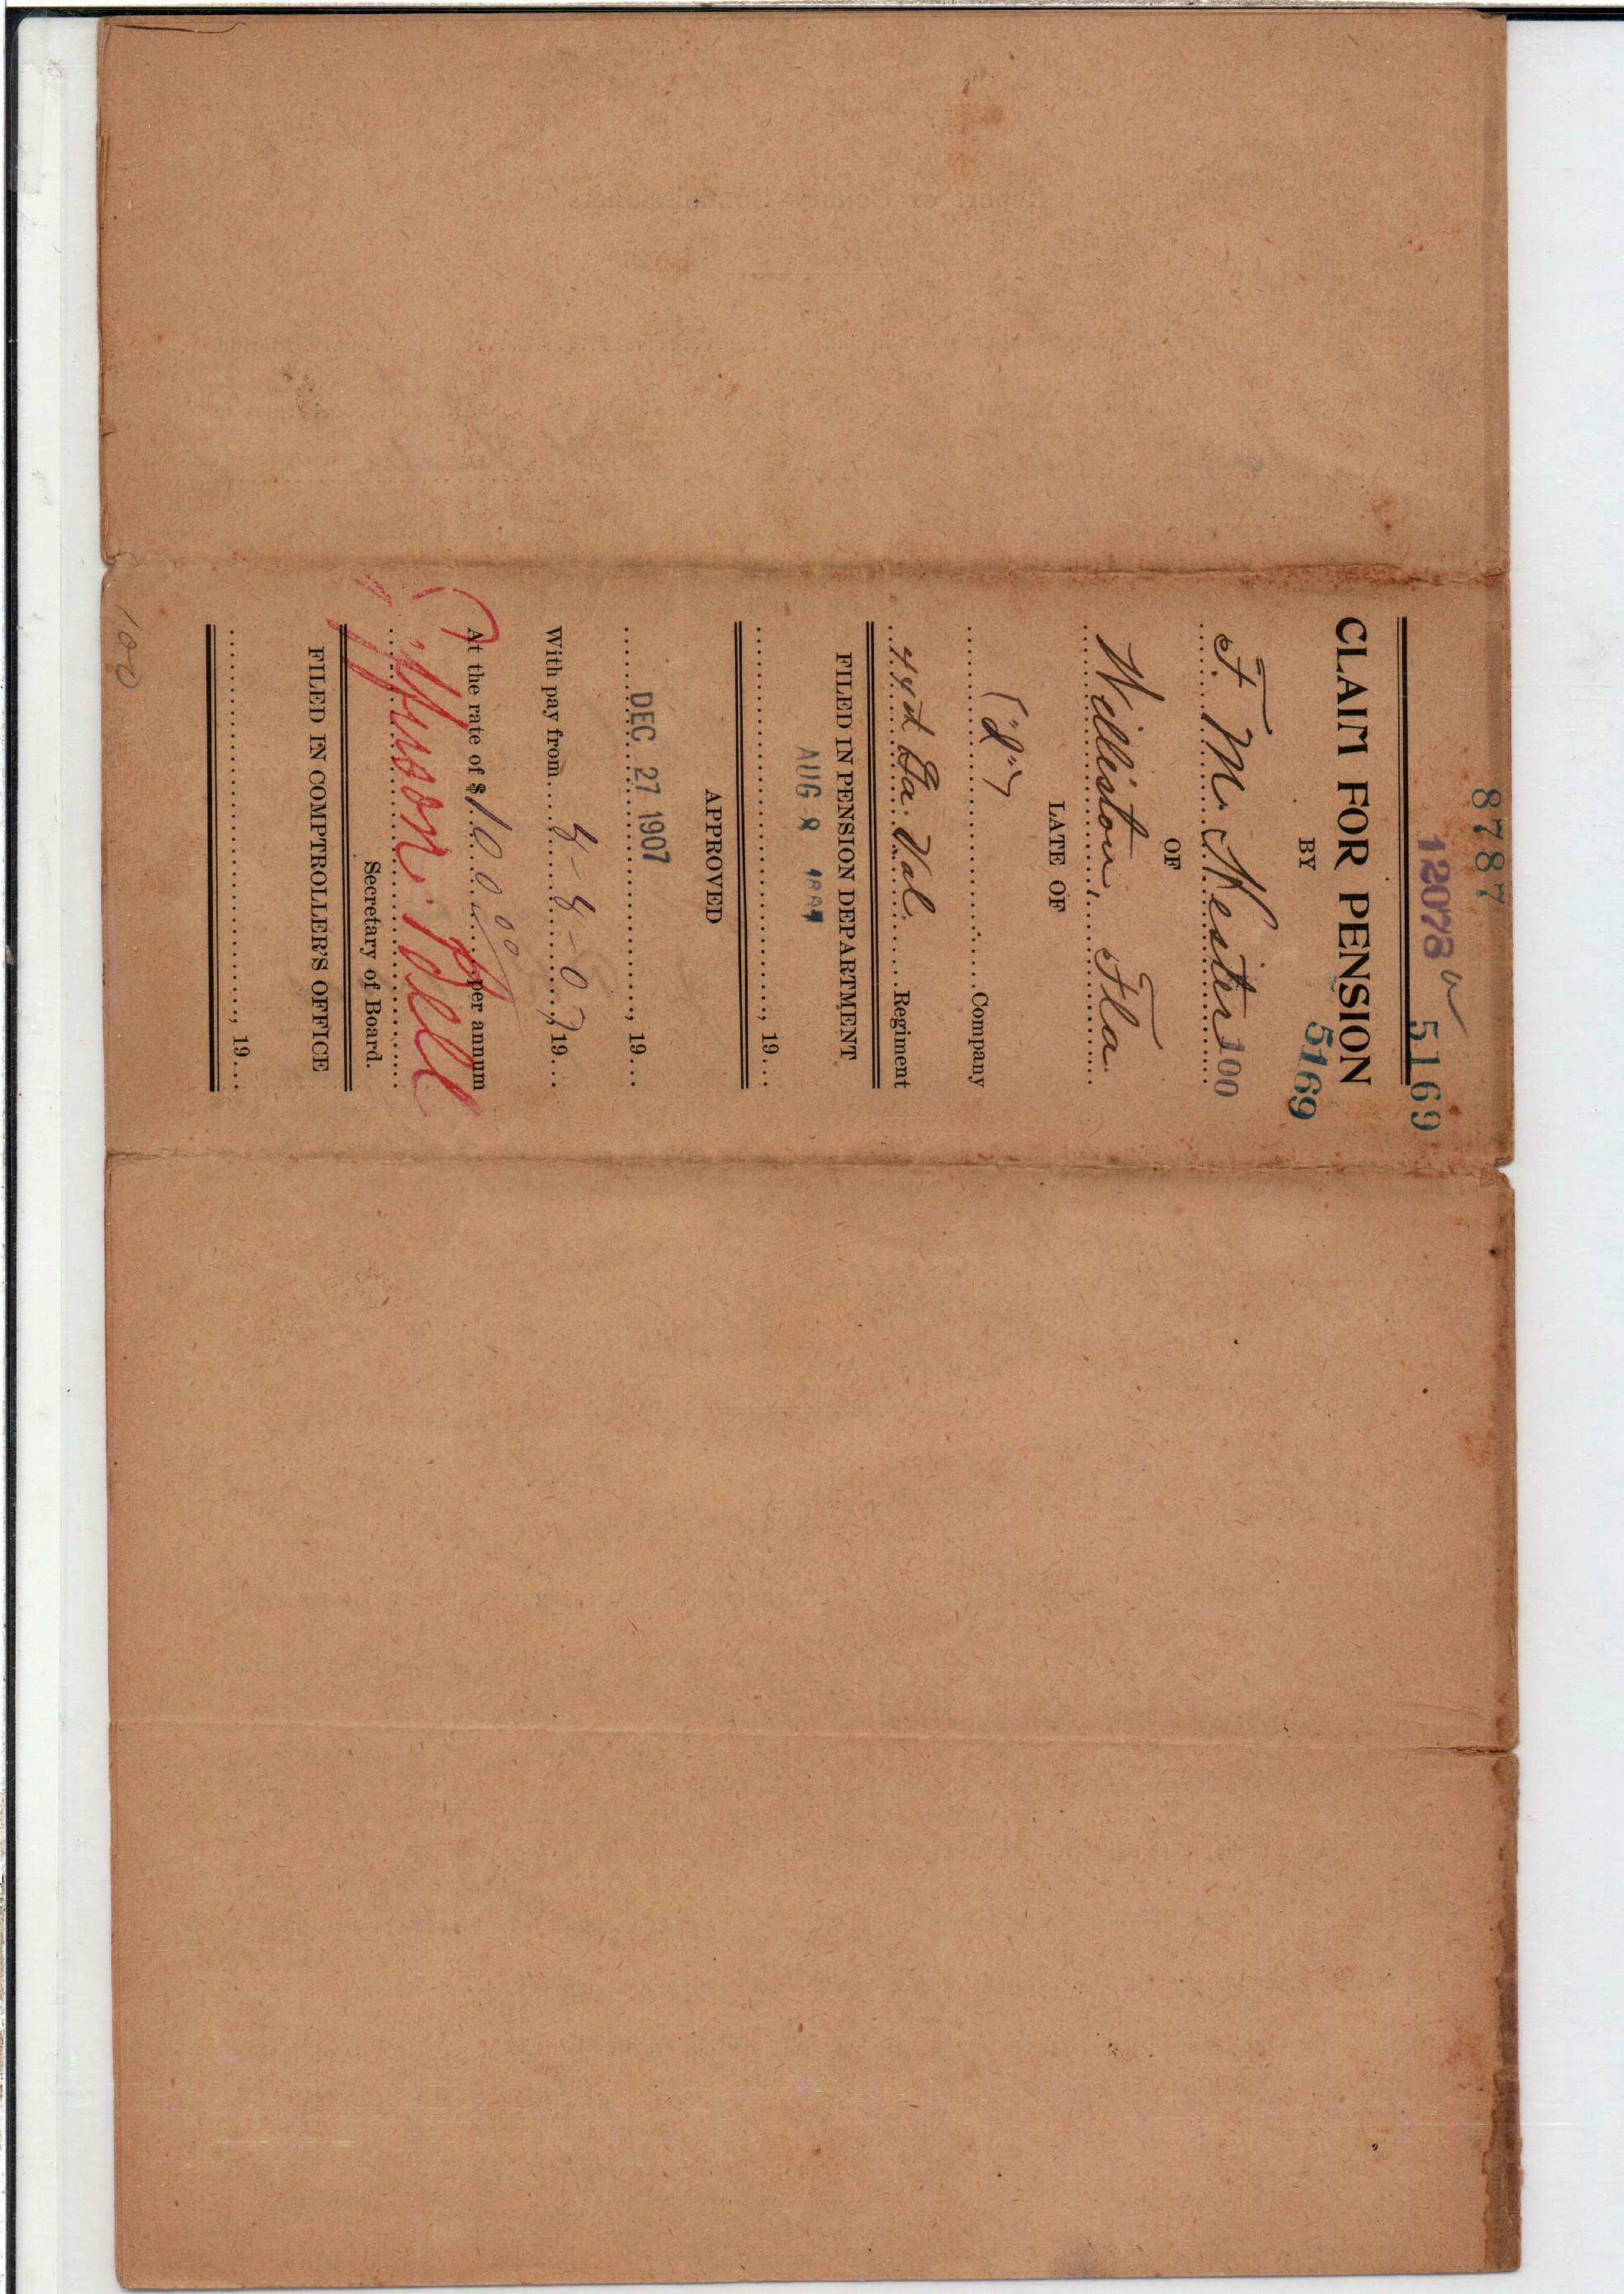 8787
12078
5169
CLAIM FOR PENSION
BY
5169
F. M. Nester 100
OF
Williston, Fla.
LATE OF
Company
44th Ga. Vol. Regiment
FILED IN PENSION DEPARTMENT
AUG 8
, 19...
APPROVED
DEC 27 1907, 19...
With pay from 8-8-07 19...
At the rate of $100.00 per annum
Jefferson Bell
Secretary of Board.
FILED IN COMPTROLLER'S OFFICE
, 19...
100